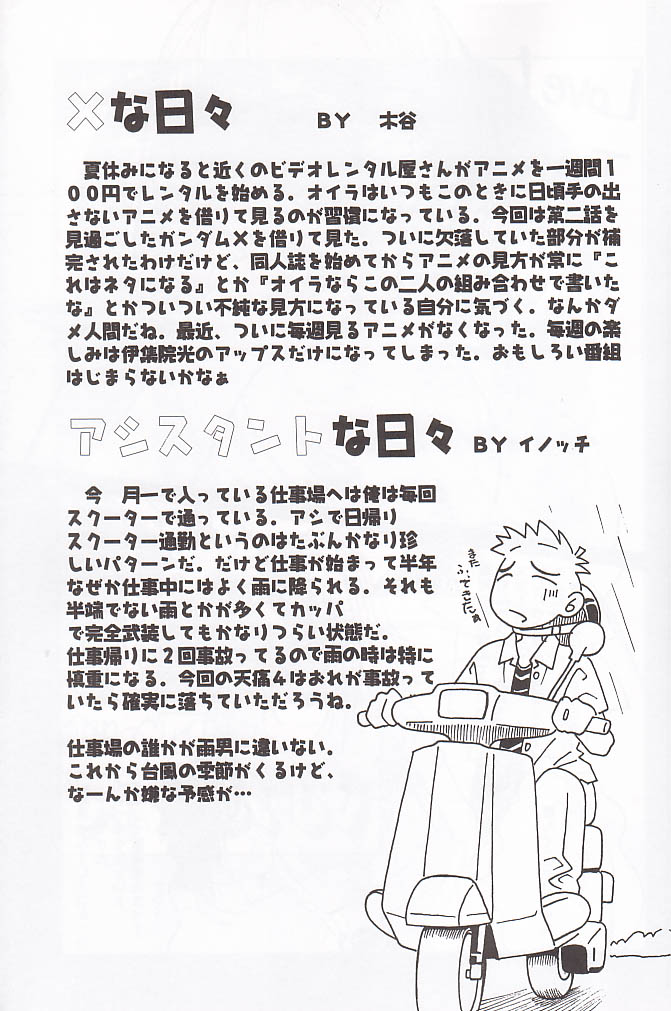 ×な日々 BY 木谷
夏休みになると近くのビデオレンタル屋さんがアニメを一週間1
00円でレンタルを始める。オイラはいつもこのときに日頃手の出
さないアニメを借りて見るのが習慣になっている。今回は第二話を
見過ごしたガンダム×を借りて見た。ついに欠落していた部分が補
完されたわけだけど、同人誌を始めてからアニメの見方が常に『こ
れはネタになる』とか『オイラならこの二人の組み合わせで書いた
な』とかついつい不純な見方になっている自分に気づく。なんかダ
メ人間だね。最近、ついに毎週見るアニメがなくなった。毎週の楽
しみは伊集院光のアップスだけになってしまった。おもしろい番組
はじまらないかなぁ
アシスタントな日々 BY イノッチ
今 月一で入っている仕事場へは俺は毎回
スクーターで通っている。アシで日帰り
スクーター通勤というのはたぶんかなり珍
しいパターンだ。だけど仕事が始まって半年
なぜか仕事中にはよく雨に降られる。それも
半端でない雨とかが多くてカッパ
で完全武装してもかなりつらい状態だ。
仕事帰りに2回事故ってるので雨の時は特に
慎重になる。今回の天痛4はおれが事故って
いたら確実に落ちていただろうね。
仕事場の誰かが雨男に違いない。
これから台風の季節がくるけど、
なーんか嫌な予感が…
また
ふってきたぁ